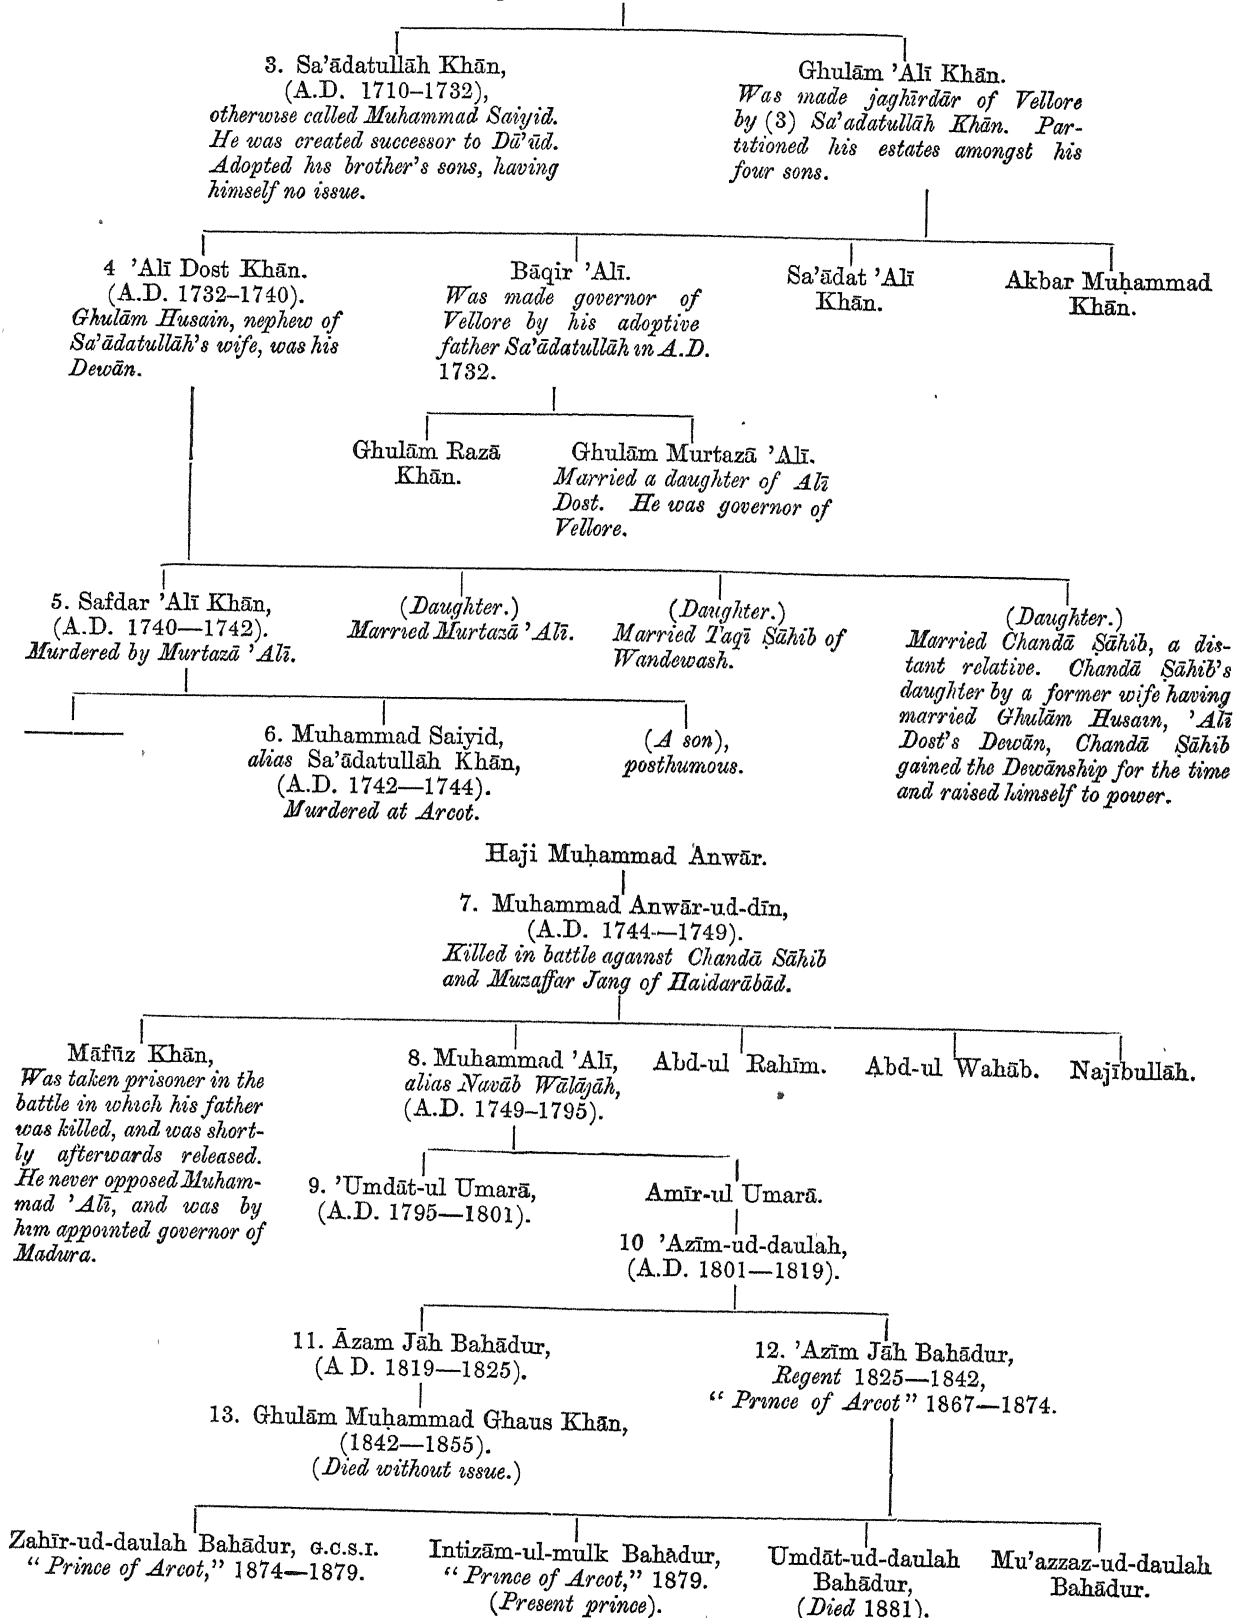 3. Sa’ādatullāh Khān,
(A.D. 1710–1732),
otherwise called Muhammad Saiyid.
He was created successor to Dā’ūd.
Adopted his brother’s sons, having
himself no issue.
Ghulām ’Alī Khān.
Was made jaghīrdār of Vellore
by (3) Sa’adatullāh Khān. Par-
titioned his estates amongst his
four sons.
4 ’Alī Dost Khān.
(A.D. 1732–1740).
Ghulām Husain, nephew of
Sa’ādatullāh’s wife, was his
Dewān.
Bāqir ’Alī.
Was made governor of
Vellore by his adoptive
father Sa’ādatullāh in A.D.
1732.
Sa’ādat ’Alī
Khān.
Akbar Muḥammad
Khān.
Ghulām Razā
Khān.
Ghulām Murtazā ’Alī.
Married a daughter of Alī
Dost. He was governor of
Vellore.
5. Safdar ’Alī Khān,
(A.D. 1740—1742).
Murdered by Murtazā ’Alī.
(Daughter.)
Married Murtazā ’Alī.
(Daughter.)
Married Taqī Ṣāhib of
Wandewash.
(Daughter.)
Married Chandā Ṣāhib, a dis-
tant relative. Chandā Ṣāhib’s
daughter by a former wife having
married Ghulām Husain, ’Alī
Dost’s Dewān, Chandā Ṣāhib
gained the Dewānship for the time
and raised himself to power.
6. Muhammad Saiyid,
alias Sa’ādatullāh Khān,
(A.D. 1742—1744).
Murdered at Arcot.
(A son),
posthumous.
Haji Muḥammad Anwār.
7. Muhammad Anwār-ud-dīn,
(A.D. 1744—1749).
Killed in battle against Chandā Sāhib
and Muzaffar Jang of Haidarābād.
Māfūz Khān,
Was taken prisoner in the
battle in which his father
was killed, and was short-
ly afterwards released.
He never opposed Muham-
mad ’Alī, and was by
him appointed governor of
Madura.
8. Muhammad ’Alī,
alias Navāb Wālājāh,
(A.D. 1749–1795).
Abd-ul Rahīm.
Abd-ul Wahāb.
Najībullāh.
9. ’Umdāt-ul Umarā,
(A.D. 1795—1801).
Amīr-ul Umarā.
10 ’Azīm-ud-daulah,
(A.D. 1801—1819).
11. Āzam Jāh Bahādur,
(A D. 1819—1825).
12. ’Azīm Jāh Bahādur,
Regent 1825—1842,
“ Prince of Arcot” 1867—1874.
13. Ghulām Muḥammad Ghaus Khān,
(1842—1855).
(Died without issue.)
Zahīr-ud-daulah Bahādur, G.C.S.I.
“ Prince of Arcot,” 1874—1879.
Intizām-ul-mulk Bahādur,
“ Prince of Arcot,” 1879.
(Present prince).
Umdāt-ud-daulah
Bahādur,
(Died 1881).
Mu’azzaz-ud-daulah
Bahādur.